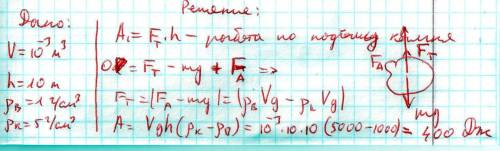 Дано:
V=10⁻³ м³
h=10 м
ρв=1 г/см³
ρк=5 г/см³
Решение:
A₁=Fт·h – работа по подъёму камня
0=Fт – mg + FA =>
Fт=|FA – mg|=(ρвVg – ρкVg)
A=Vgh(ρк–ρв)=10⁻³·10·10(5000–1000)=400 Дж
FA
Fт
mg